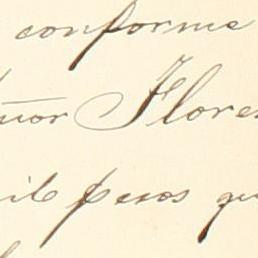 conforme
ñor Flores
il pesos qu